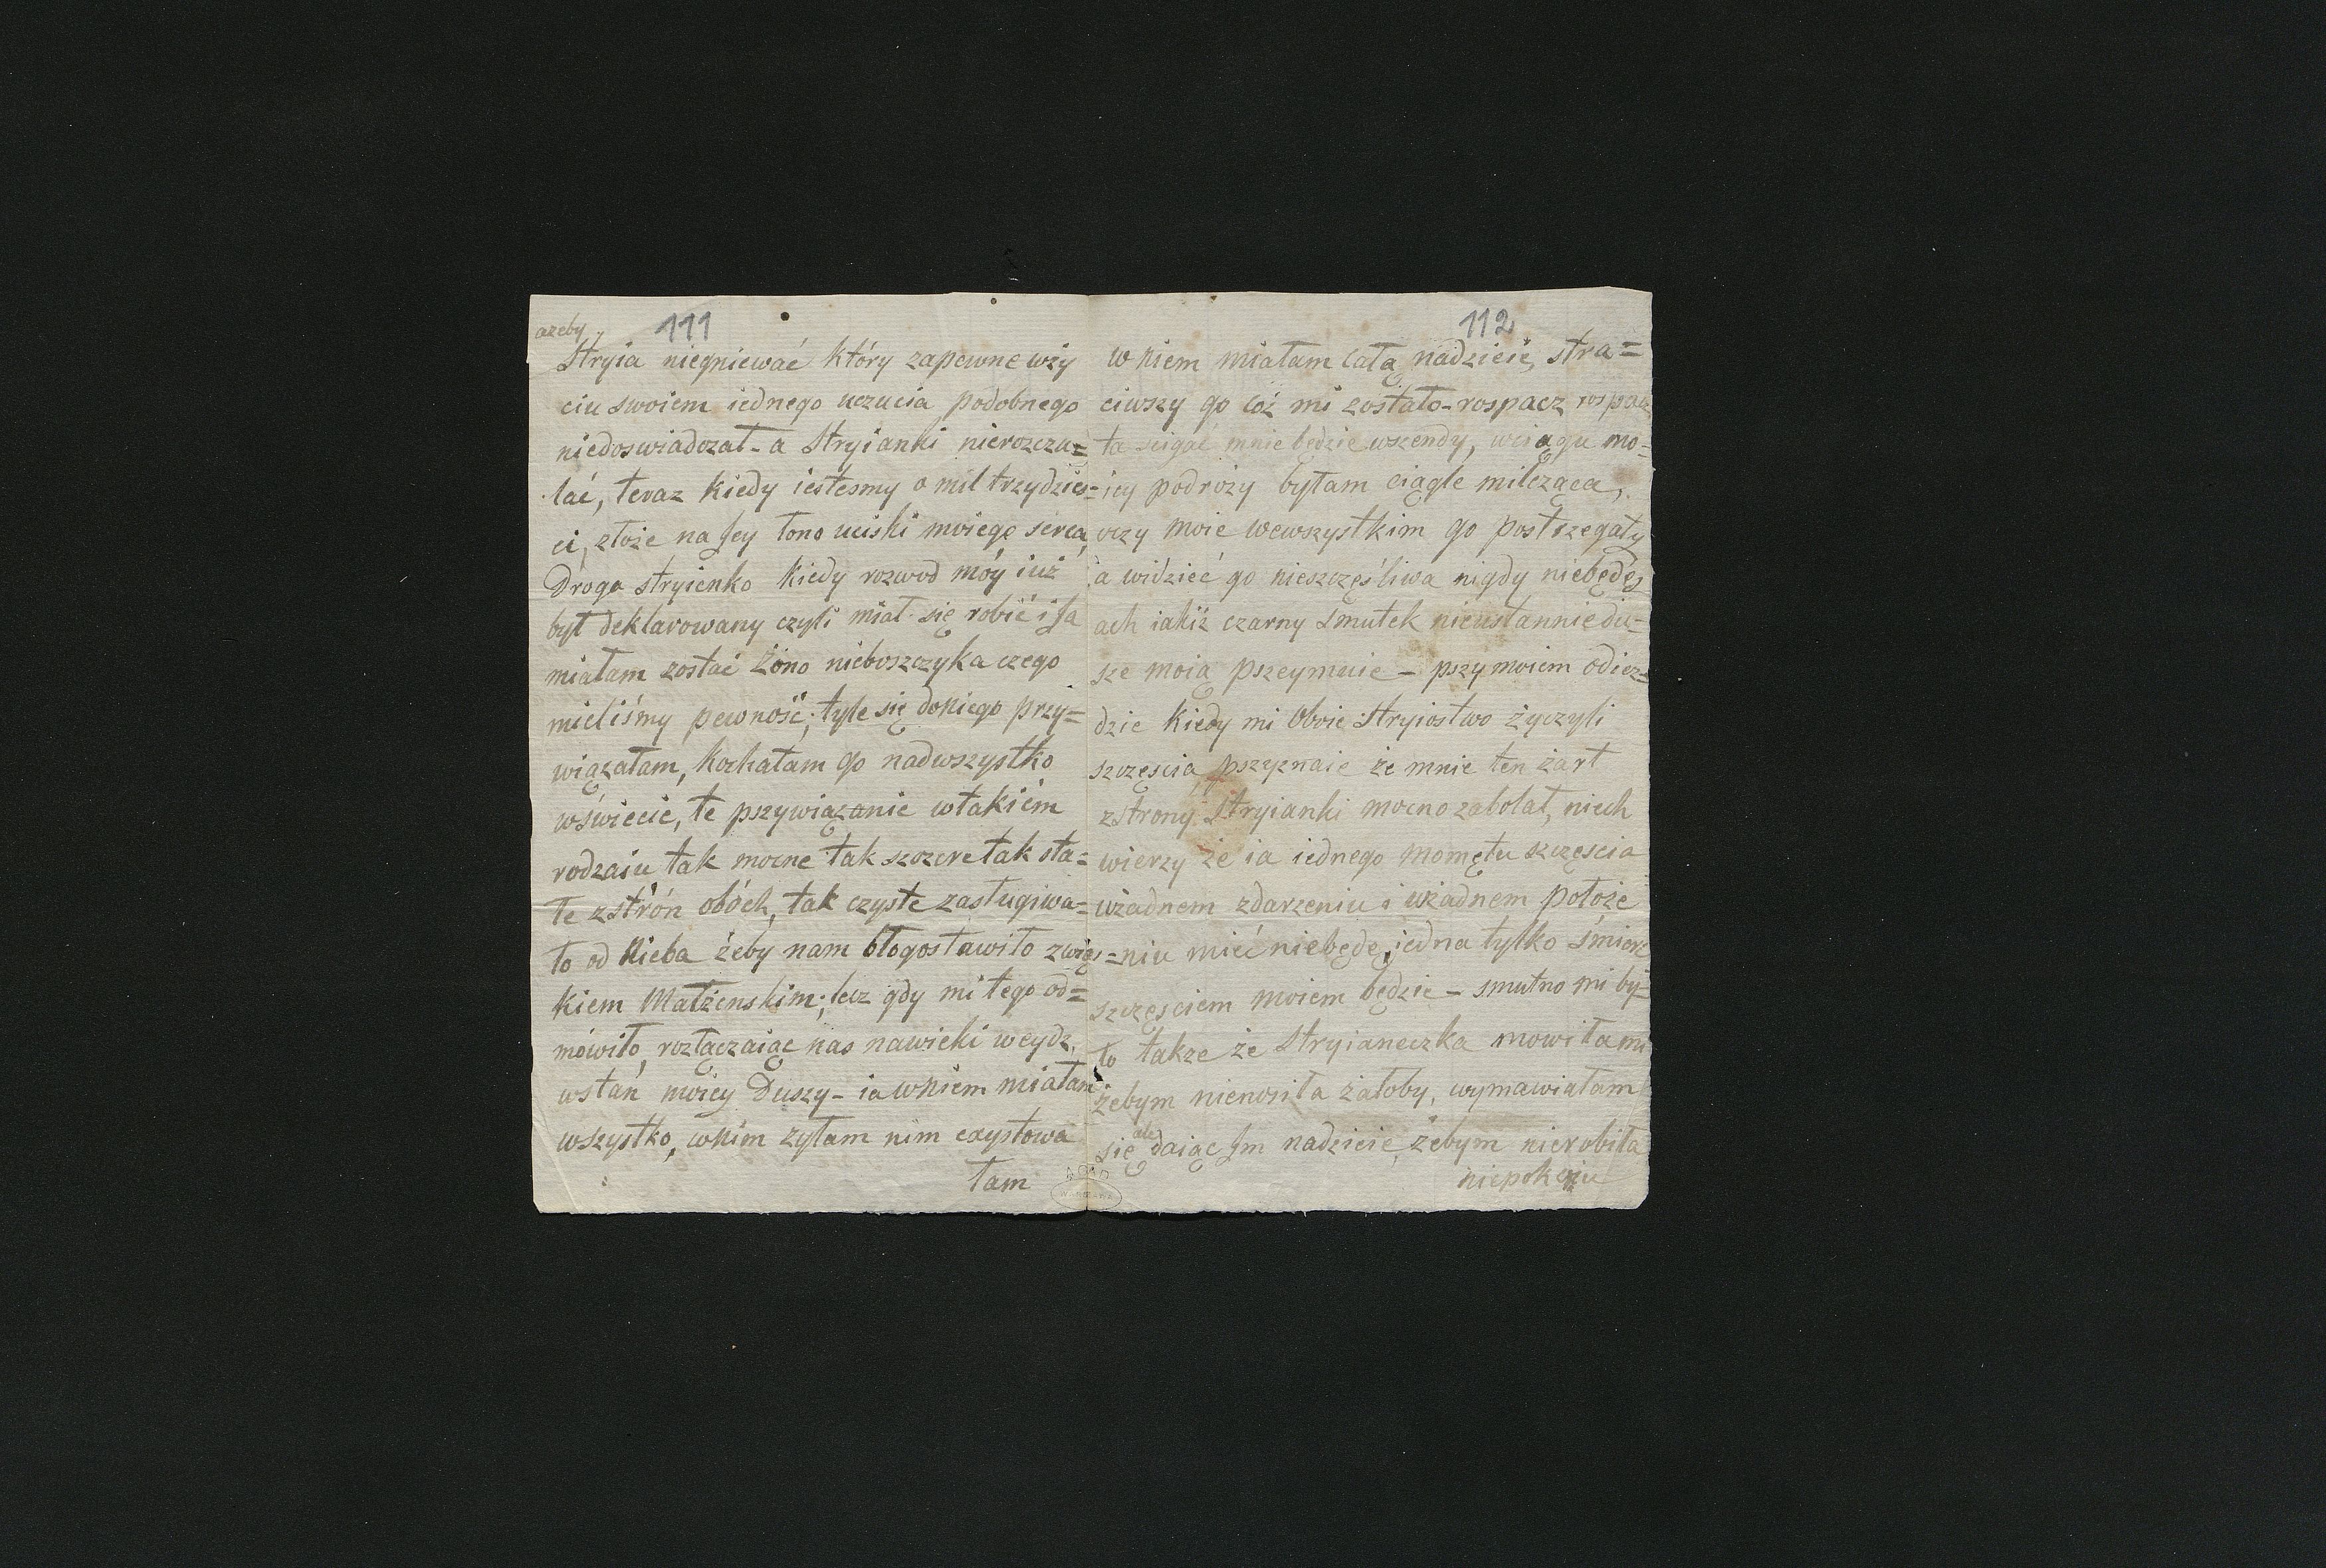 111
ażeby
Stryia niegniewać który zapewne wży
ciu swoiem iednego uczucia podobnego
niedoswiadczał - a Stryianki nierozczu=
lać, teraz kiedy iestesmy o mil trzydzies=
ci, złoże na Jey łono uciski moiego serca,
Droga stryienko kiedy rozwod móy iuż
był deklarowany czyli miał się robić i Ja
miałam zostać Żono nieboszczyka czego
mieliśmy pewność; tyle się doniego przy=
wiązałam, kochałam go nadwszystko
wświecie, te pszywiązanie wtakiém
rodzaiu tak mocne tak szczere tak sta=
łe zstrón obóch, tak czyste zasługiwa=
ło od Nieba żeby nam błogosławiło zwięs=
kiem Małżenskim; lecz gdy mi tego od=
mówiło, rozłączaiąc nas nawieki weydz
wstan moiey Duszy - ia wniem miałam
wszystko, wnim żyłam nim exystowa
łam
112
w niem miałam całą nadzieię, stra=
ciwszy go cóż mi zostało - rospacz rospacz
ta scigać mnie będzie wszendy, wciągu mo=
iey podróży byłam ciągle milcząca,
oczy moie wewszystkim go postrzegały
a widzieć go nieszczęśliwa nigdy niebędę,
ach iakiż czarny smutek nieustannie du=
sze moią pszeymuie - pszy moiem odiez=
dzie kiedy mi Oboie Stryiostwo życzyli
szczęscia, pszyznaie że mnie ten żart
zstrony Stryianki mocno zabolał, niech
wierzy że ia iednego momętu szczęscia
wżadnem zdarzeniu i wżadnem położe
=niu mieć niebędę, iedna tylko śmierć
szczęsciem moiem będzie - smutno mi by=
ło takze że Stryianeczka mowiła mi
żebym nienosiła żałoby, wymawiałam
się ale daiąc Im nadzieie, żebym nierobiła
niepokoiu